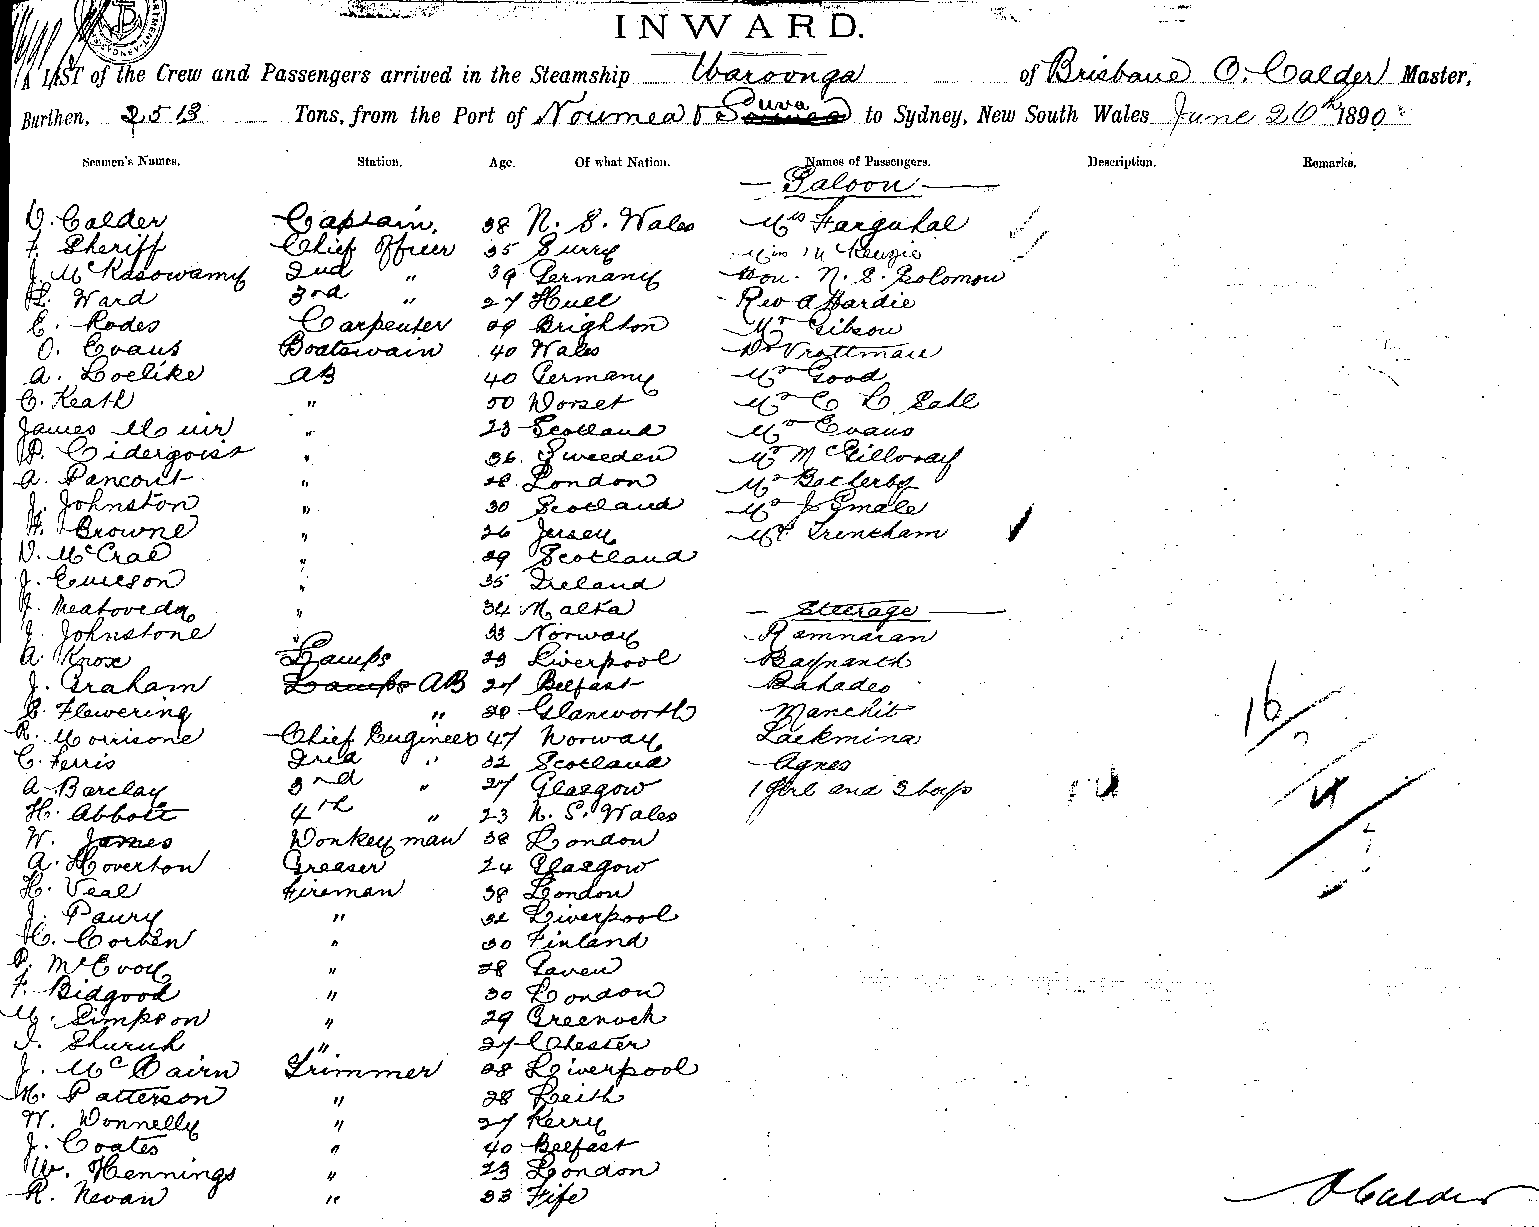 INWARD.
A LIST of the Crew and Passengers arrived in the Steamship Waroonga of Brisbane O. Calder Master,
Burthen, 2513 Tons, from the Port of Noumea & Suva to Sydney, New South Wales June 26th 1890
Seamen's Names. Station. Age. Of what Nation. Names of Passengers. Description. Remarks.
Saloon
Calder Captain, 38 N. S. Wales Farquhal
F. Sheriff Chief Officer 35 Surry McKenzie
J. 2nd " 39 Germany Hon. N. S. Solomon
Ward 3rd " 27 Hull Rev A Hardie
C. Rodes Carpenter 29 Brighton Mr Gibson
O. Evans Boatswain 40 Wales Dr Vrottman
A. Loelike AB 40 Germany Mr Good
C. Keath " 50 Dorset Mr C
James Muir " 23 Scotland Mr Evans
" 36 Sweeden Mr McGilloray
A. Pancout " 28 London Mr
J. Johnston " 30 Scotland Mr J Smale
H. Browne " 26 Jersey Mr Trencham
D. McCrae " 29 Scotland
J. " 35 Ireland
" 34 Malta Steerage
J. Johnstone " 33 Norway Ramnaran
A. Knox Lamps 23 Liverpool
J. Graham Lamps AB 27 Belfast Bahadeo
Flewering " 28 Glanworth Manchit
R. Morrisone Chief Engineer 47 Norway Lackmina
C. Ferris 2nd " 32 Scotland Agnes
A. Barclay 3rd " 27 Glasgow 1 girl and 3 boys
H. Abbott 4th " 23 N. S. Wales
W. James Donkeyman 38 London
A. Hoverton Greaser 24 Glasgow
H. Veal Fireman 38 London
J. Paury " 32 Liverpool
H. Corben " 30 Finland
P. McEvoy " 28
F. Bidgood " 30 London
M. Simpson " 29 Greenock
" 27 Chester
J. McCairn Trimmer 28 Liverpool
M. Patterson " 28 Leith
W. Donnelly " 27 Kerry
J. Coates " 40 Belfast
W. Hennings " 23 London
R. Nevan " 33 Fife
16
O Calder